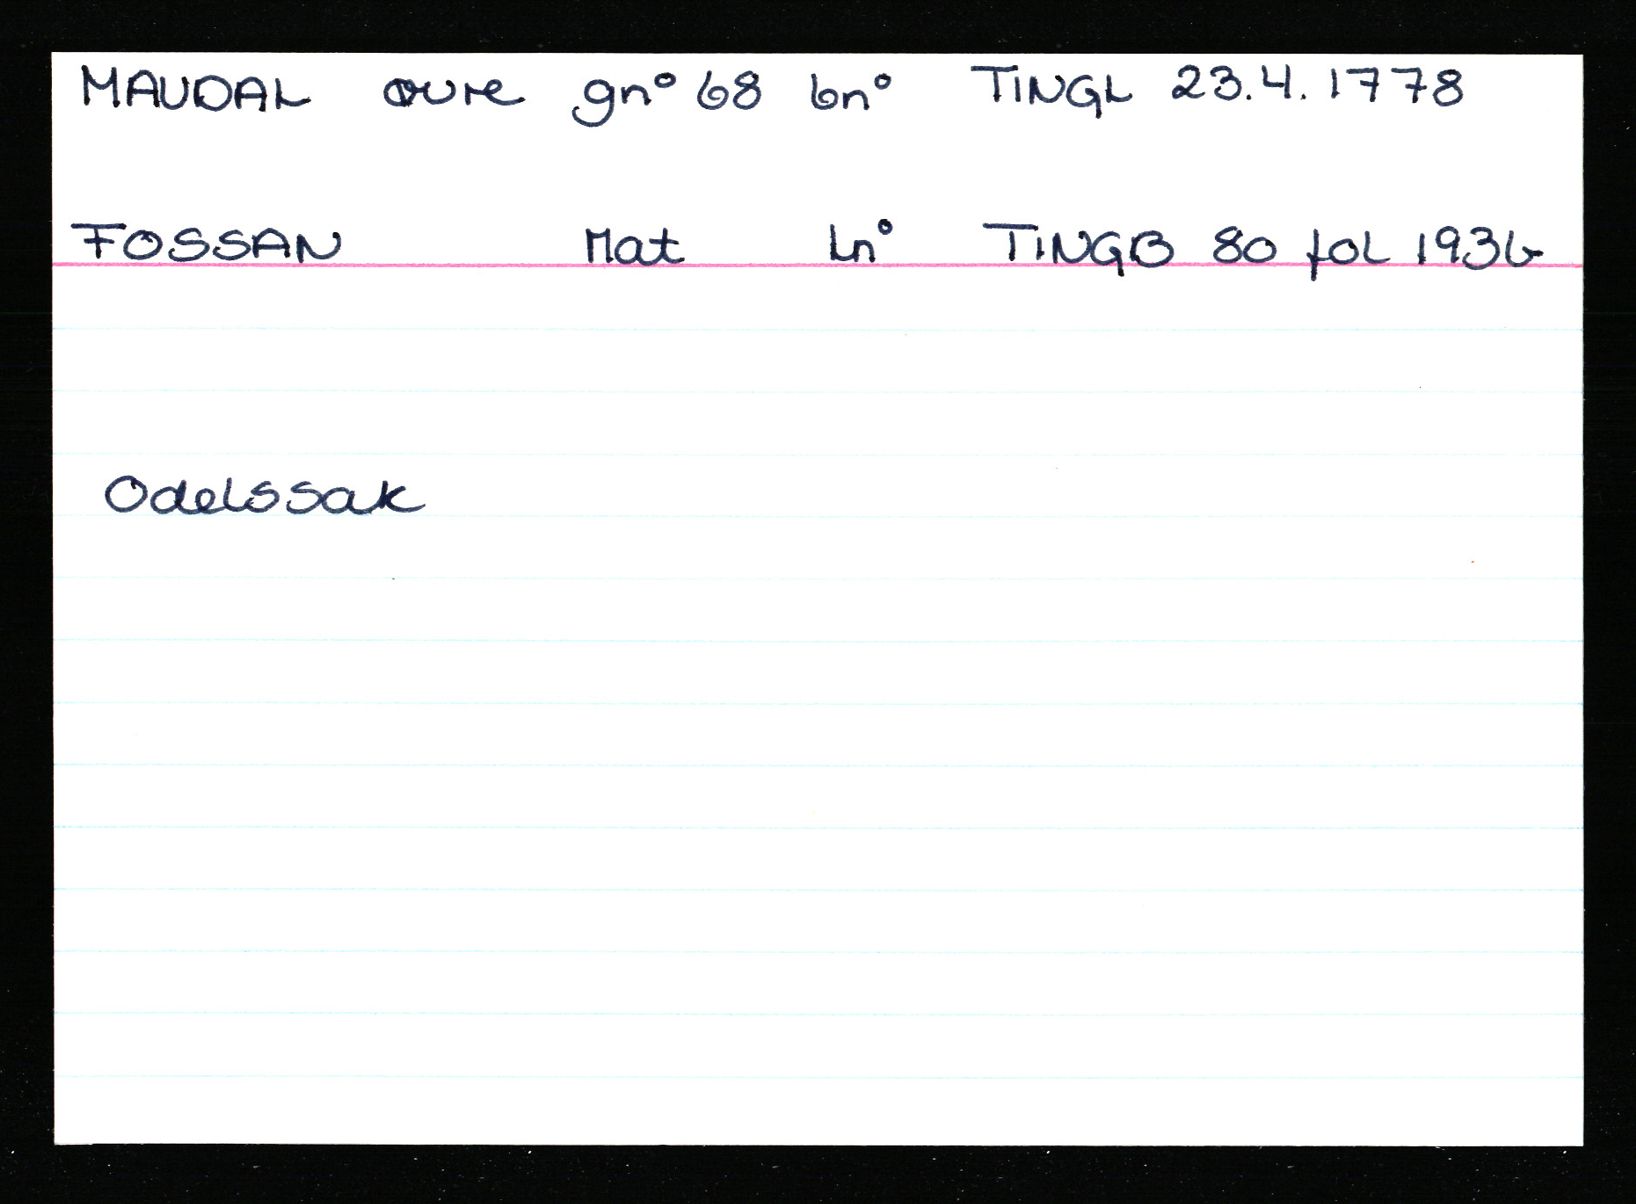 MAUDAL øvre gn° 68 bn° TINGL 23.4.1778
FOSSAN Mat Ln° TINGB 80 fol 193b
Odelssak